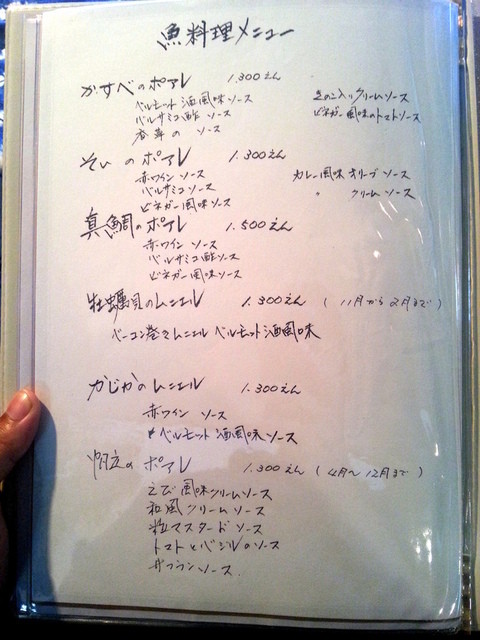 魚料理メニュー
かすべのポアレ 1.300えん
ベルモット酒風味ソース きのこ入りクリームソース
バルサミコ酢ソース ビネガー風味のトマトソース
香草のソース
そいのポアレ 1.300えん
赤ワインソース カレー風味オリーブソース
バルサミコソース 〃 クリームソース
ビネガー風味ソース
真鯛のポアレ 1.500えん
赤ワインソース
バルサミコ酢ソース
ビネガー風味ソース
牡蠣貝のムニエル 1.300えん (11月から2月まで)
ベーコン巻きムニエル ベルモット酒風味
かじかのムニエル 1.300えん
赤ワインソース
ベルモット酒風味ソース
帆立のポアレ 1.300えん (4月〜12月まで)
えび風味クリームソース
和風クリームソース
粒マスタードソース
トマトとバジルのソース
サフランソース